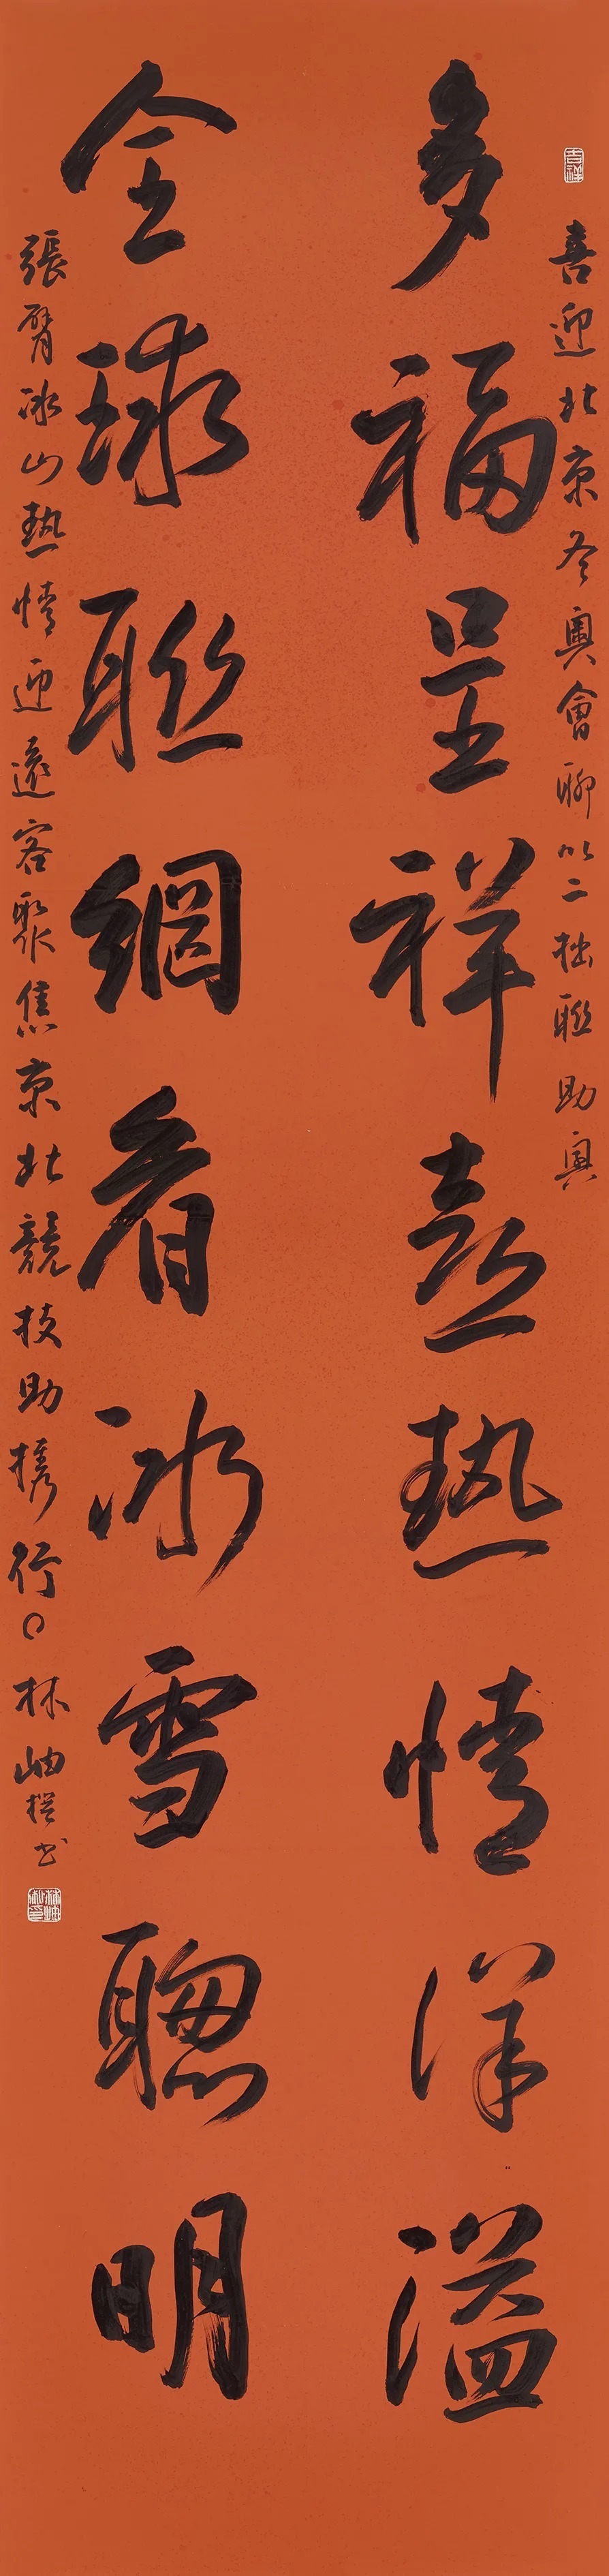 吉祥
喜迎北京冬奧會聊以二拙聯助興
多福呈祥盡熱情洋溢
全球聯網看冰雪聰明
張臂冰山熱情迎遠客聚焦京北競技助攜行〇林岫撰书